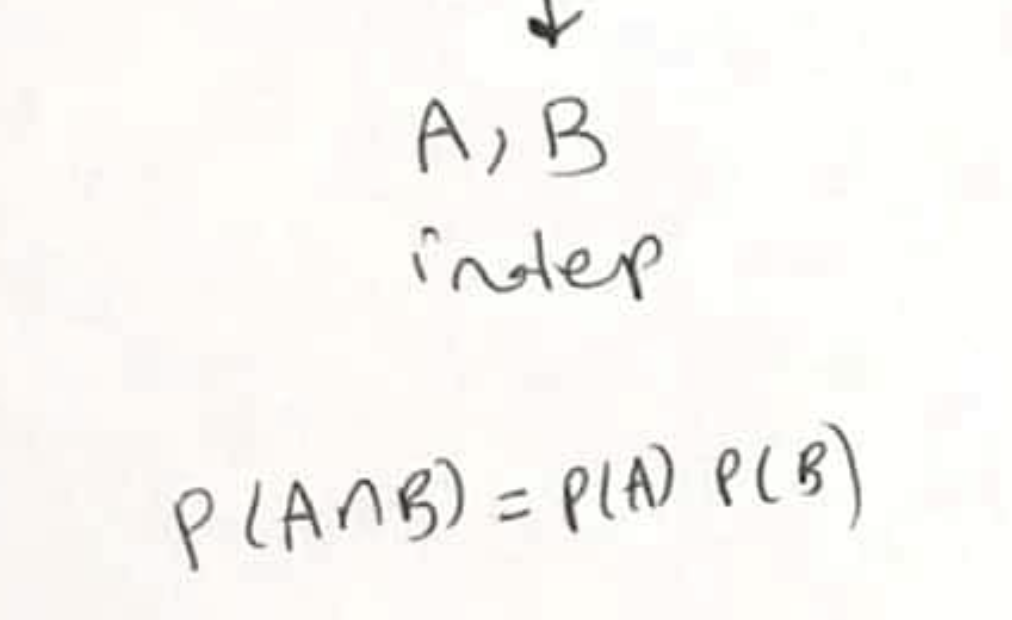 A, B
indep
P(A∩B) = P(A) P(B)